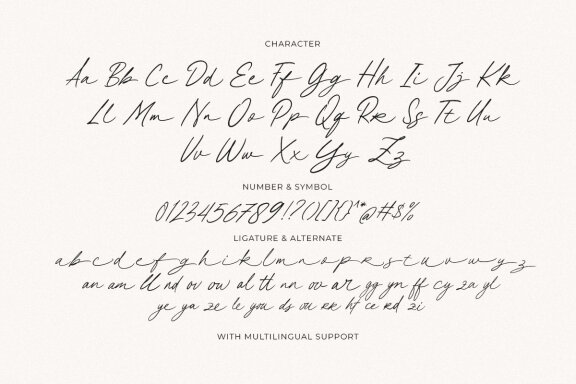 CHARACTER
Aa Bb Cc Dd Ee Ff Gg Hh Ii Jj Kk
Ll Mm Nn Oo Pp Qq Rr Ss Tt Uu
Vv Ww Xx Yy Zz
NUMBER & SYMBOL
0123456789!?()[]{}^*@#$%
LIGATURE & ALTERNATE
a b c d e f g h i k l m n o p r s t u v w y z
an am ll nd ov ow al tl nn ov ar gg yn ff cy za yl
ye ya ze le you ds ou rr ht ce rd zi
WITH MULTILINGUAL SUPPORT